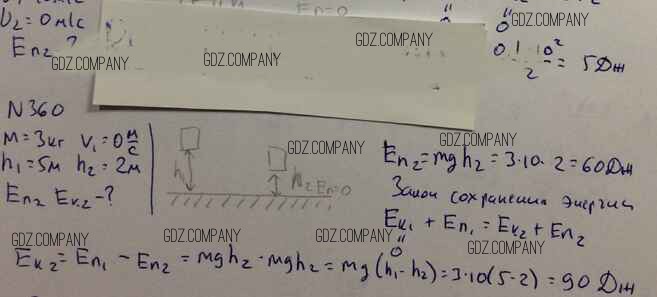 υ₂ = 0 м/с
Eп=0
Eп₂ ?
0,1 · 10² / 2 = 5 Дж
GDZ.COMPANY
GDZ.COMPANY
GDZ.COMPANY
GDZ.COMPANY
N360
GDZ.COMPANY
m = 3кг V₁ = 0 м/с
h₁ = 5м h₂ = 2м
Eп₂ Eк₂ - ?
h₁
h₂ Eп=0
GDZ.COMPANY
Eп₂ = mgh₂ = 3·10·2 = 60 Дж
Закон сохранения энергии
Eк₁ + Eп₁ = Eк₂ + Eп₂
0
GDZ.COMPANY GDZ.COMPANY GDZ.COMPANY GDZ.COMPANY
Eк₂ = Eп₁ - Eп₂ = mgh₂ - mgh₂ = mg(h₁-h₂) = 3·10(5-2) = 90 Дж